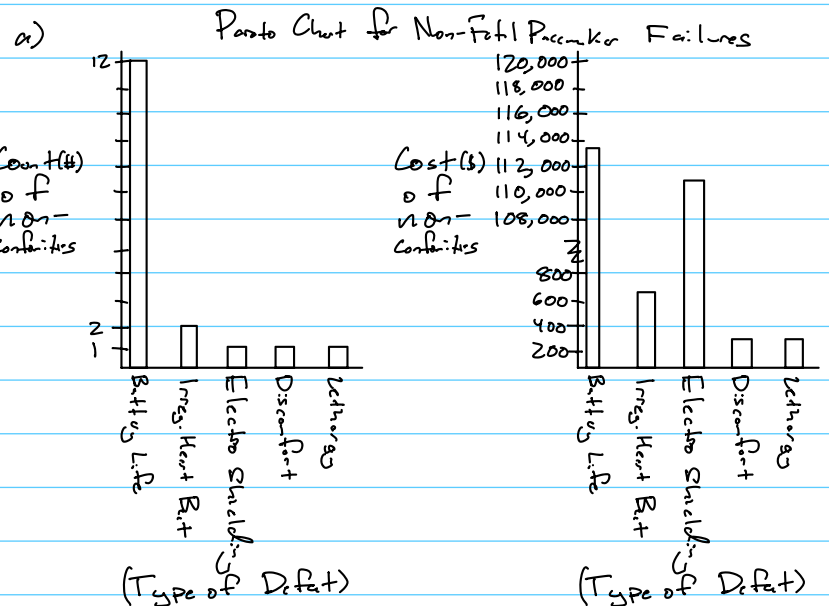 a) Pareto Chart for Non-Fatal Pacemaker Failures
12
Count(#)
of
non-
2
1
Battery Life
Irreg. Heart Beat
Electro Shielding
Discomfort
Lethargy
(Type of Defect)
120,000
118,000
116,000
114,000
Cost($) 112,000
of 110,000
non- 108,000
800
600
400
200
Battery Life
Irreg. Heart Beat
Electro Shielding
Discomfort
Lethargy
(Type of Defect)